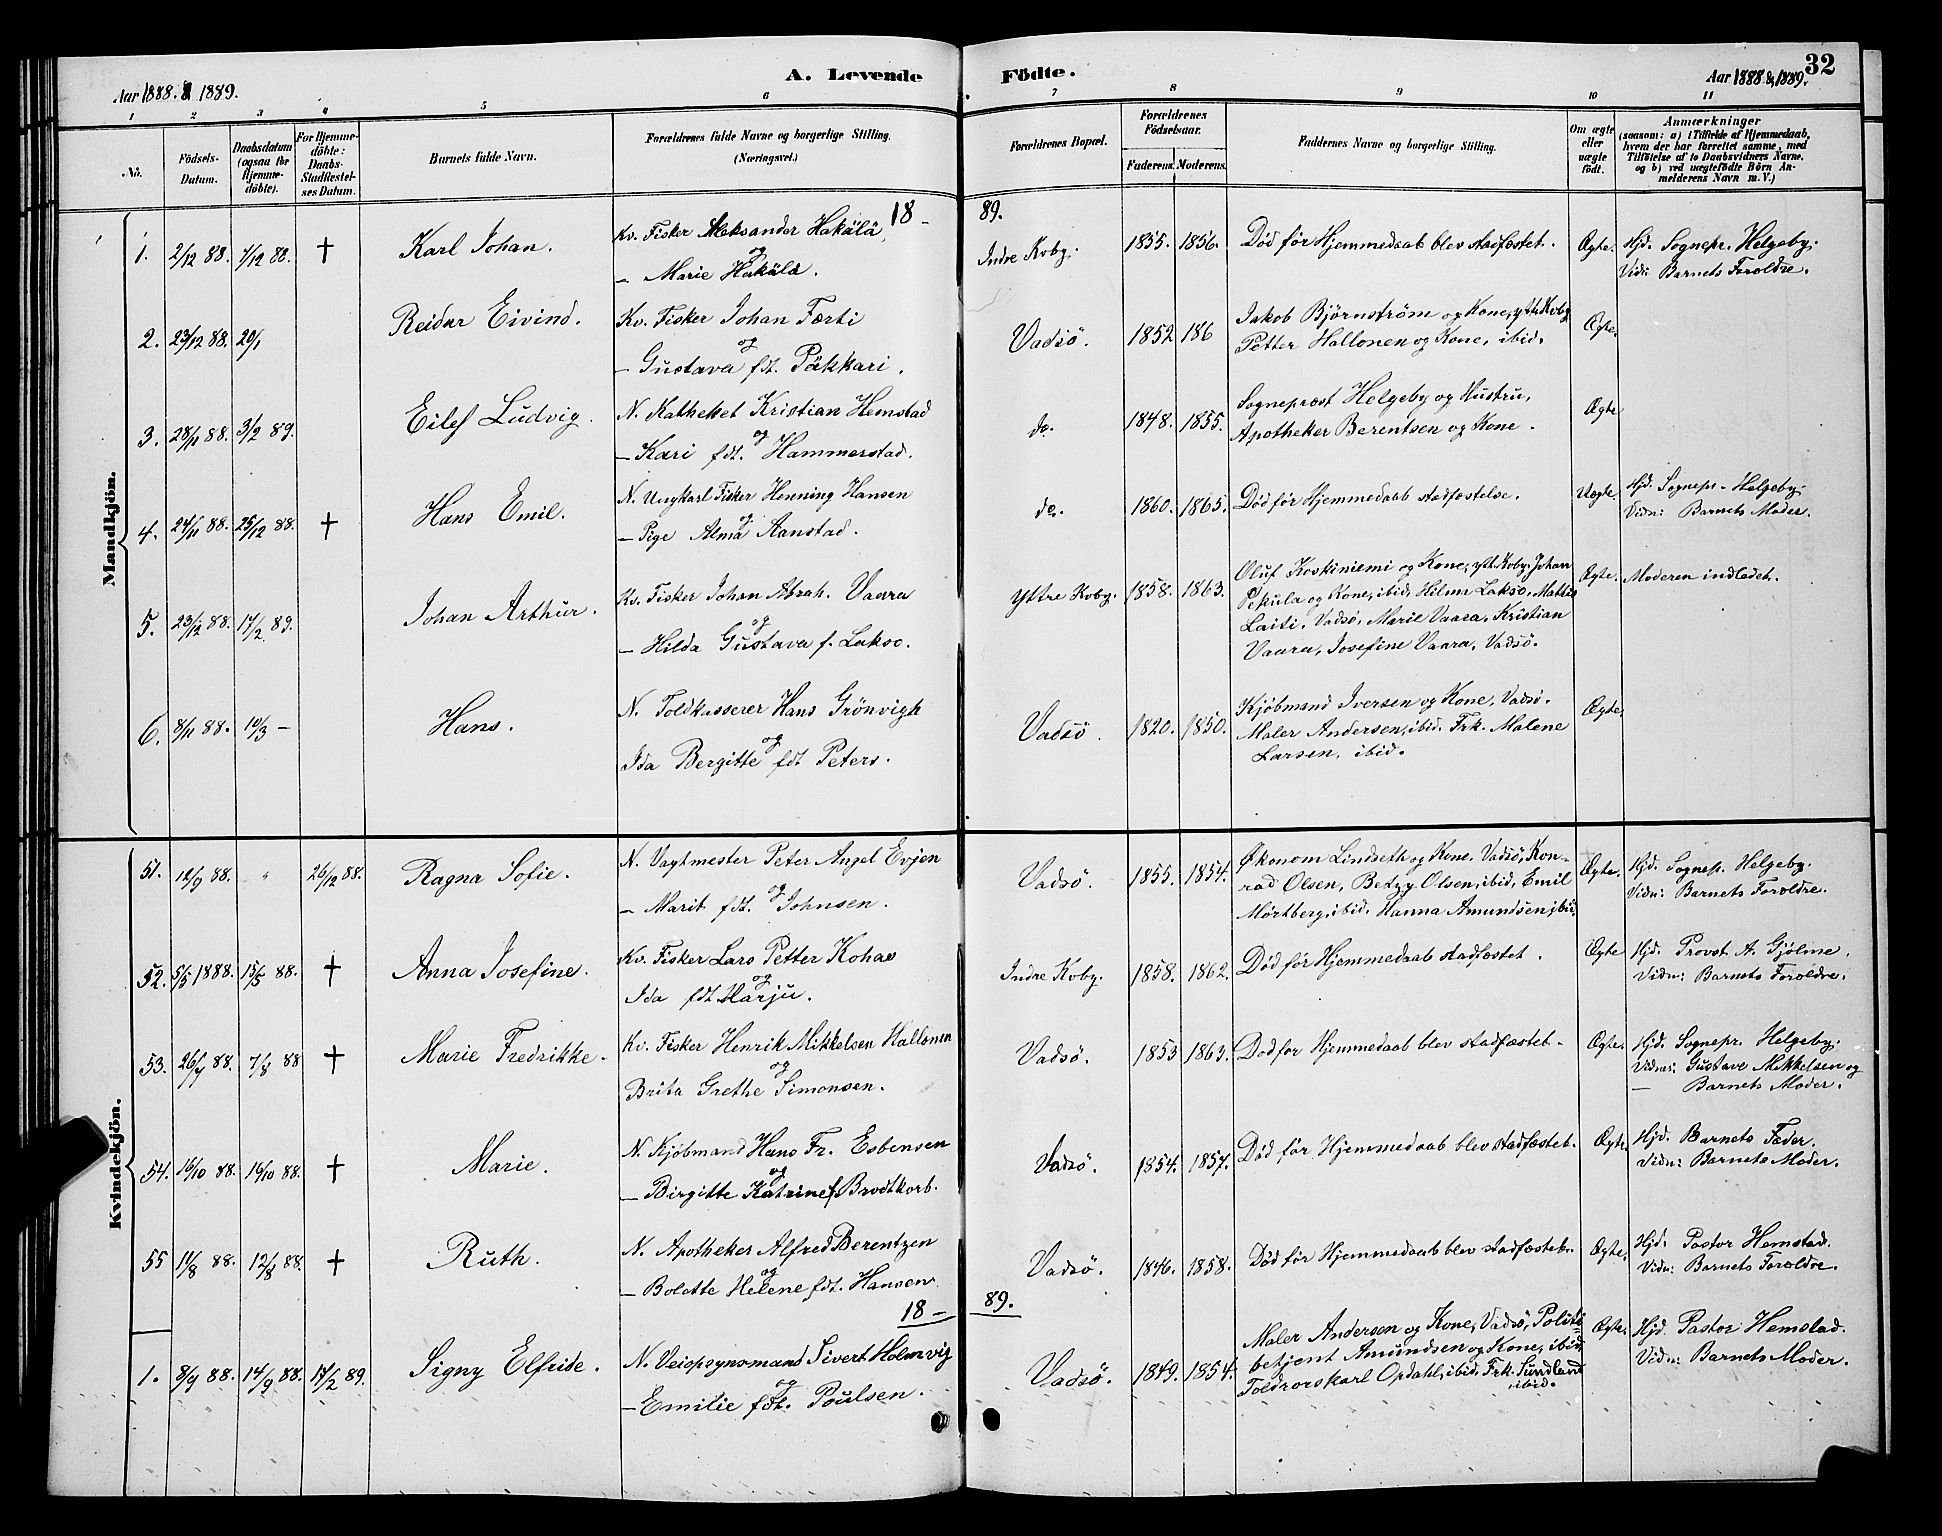 A. Levende Födte.
32
Aar 1888. & 1889.
Aar 1888 & 1889.
1 2 3 4 5 6 7 8 9 10 11
No.
Födsels-
Datum.
Daabsdatum
(ogsaa for
Hjemme-
döbte).
For Hjemme-
döbte:
Daabs-
Stadfæstel-
ses Datum.
Barnets fulde Navn.
Forældrenes fulde Navne og borgerlige Stilling.
(Næringsvei.)
Forældrenes Bopæl.
Forældrenes
Födselsaar.
Faderens. Moderens.
Faddernes Navne og borgerlige Stilling.
Om ægte
eller
uægte
födt.
Anmærkninger
(saasom: a) i Tilfælde af Hjemmedaab,
hvem der har forrettet samme, med
Tilföielse af to Daabsvidners Navne,
og b) ved uægtefödte Börn An-
melderens Navn m. V.)
Mandkjön.
18 - 89.
1. 2/12 88. 7/12 88. † Karl Johan.
Kv. Fisker Aleksander Hakälä
og
— Marie Hakälä.
Indre Kvby. 1855. 1856. Död för Hjemmedaab blev stadfæstet. Ægte.
Hjd. Sognepr. Helgeby.
Vidn: Barnets Foroldre.
2. 23/12 88. 20/1 Reidar Eivind.
Kv. Fisker Johan Færti
og
— Gustava fdt. Päkkari.
Vadsö. 1852 186
Jakob Björnström og Kone, ytt. Kvby
Petter Hallonen og Kone, ibid.
Ægte.
3. 28/11 88. 3/2 89. Eilef Ludvig.
N. Katheket Kristian Hemstad
og
— Kari fdt. Hammerstad.
do. 1848. 1855.
Sogneprost Helgeby og Hustru,
Apotheker Berentsen og Kone.
Ægte
4. 24/11 88. 25/12 88. † Hans Emil.
N. Ungkarl Fisker Henning Hansen
og
— Pige Alma Aanstad.
do. 1860. 1865. Död för Hjemmedaab stadfæstelse. Uægte.
Hjd. Sognepr. Helgeby.
Vidn: Barnets Moder.
5. 23/12 88. 17/2 89. Johan Arthur.
Kv. Fisker Johan Abrah. Vaara
og
— Hilda Gustava f. Lakso.
Yttre Kvby. 1858. 1863.
Oluf Koskiniemi og Kone, ytt. Kvby, Johan
Pekula og Kone, ibid, Hilma Laksö, Mathis
Laiti, Vadsö, Marie Vaara, Kristian
Vaara, Josefine Vaara, Vadsö.
Ægte. Moderen indledet.
6. 8/11 88. 10/3 — Hans.
N. Toldkasserer Hans Grönvigh
og
Ida Bergitte fdt Peters.
Vadsö. 1820. 1850.
Kjöbmand Iversen og Kone, Vadsö.
Maler Andersen, ibid. Frk. Malene
Larsen, ibid.
Ægte.
Kvindekjön.
51. 12/9 88. " 26/12 88. Ragna Sofie.
N. Vagtmester Peter Angel Evjen
og
— Marit fdt. Johnsen.
Vadsö. 1855. 1854.
Økonom Lindseth og Kone, Vadsö, Kon-
rad Olsen, Betzy Olsen, ibid, Emil
Mörtberg, ibid. Hanna Amundsen, ibid.
Ægte.
Hjd. Sognep. Helgeby.
Vidn: Barnets Foroldre.
52. 5/5 1888. 15/5 88. † Anna Josefine.
Kv. Fisker Lars Petter Kohas
og
Ida fdt Harju.
Indre Kvby. 1858. 1862. Död för Hjemmedaab stadfæstet. Ægte
Hjd. Provst A. Gjölme.
Vidn: Barnets Foroldre.
53. 26/7 88. 7/8 88 † Marie Fredrikke.
Kv. Fisker Henrik Mikkelsen Hallonen
og
Brita Grethe Simonsen.
Vadsö. 1853 1863. Död for Hjemmedaab blev stadfæstet. Ægte.
Hjd. Sognepr. Helgeby.
Vidner: Gustave Mikkelsen og
— Barnets Moder.
54. 16/10 88. 16/10 88. † Marie.
N. Kjöbmand Hans Fr. Esbensen
og
— Birgitte Katrine f. Brodtkorb.
Vadsö. 1854. 1857. Död för Hjemmedaab blev stadfæstet. Ægte.
Hjd. Barnets Fader.
Vidn: Barnets Moder.
55 11/8 88. 12/8 88. † Ruth.
N. Apotheker Alfred Berentzen
og
— Bolette Helene fdt. Hansen.
Vadsö. 1846. 1858. Död för Hjemmedaab blev stadfæstet. Ægte.
Hjd: Pastor Hemstad.
Vidn: Barnets Foroldre.
18 — 89.
1. 8/9 88. 14/9 88. 17/2 89. Signy Elfride.
N. Veiopsynsmand Sivert Holmvig
og
— Emilie fdt. Poulsen.
Vadsö. 1849. 1854.
Maler Andersen og Kone, Vadsö, Politi
betjent Amundsen og Kone, ibid,
Toldrorskarl Opdahl, ibid. Frk. Sundland
ibid.
Ægte.
Hjd. Pastor Hemstad.
Vidn: Barnets Moder.